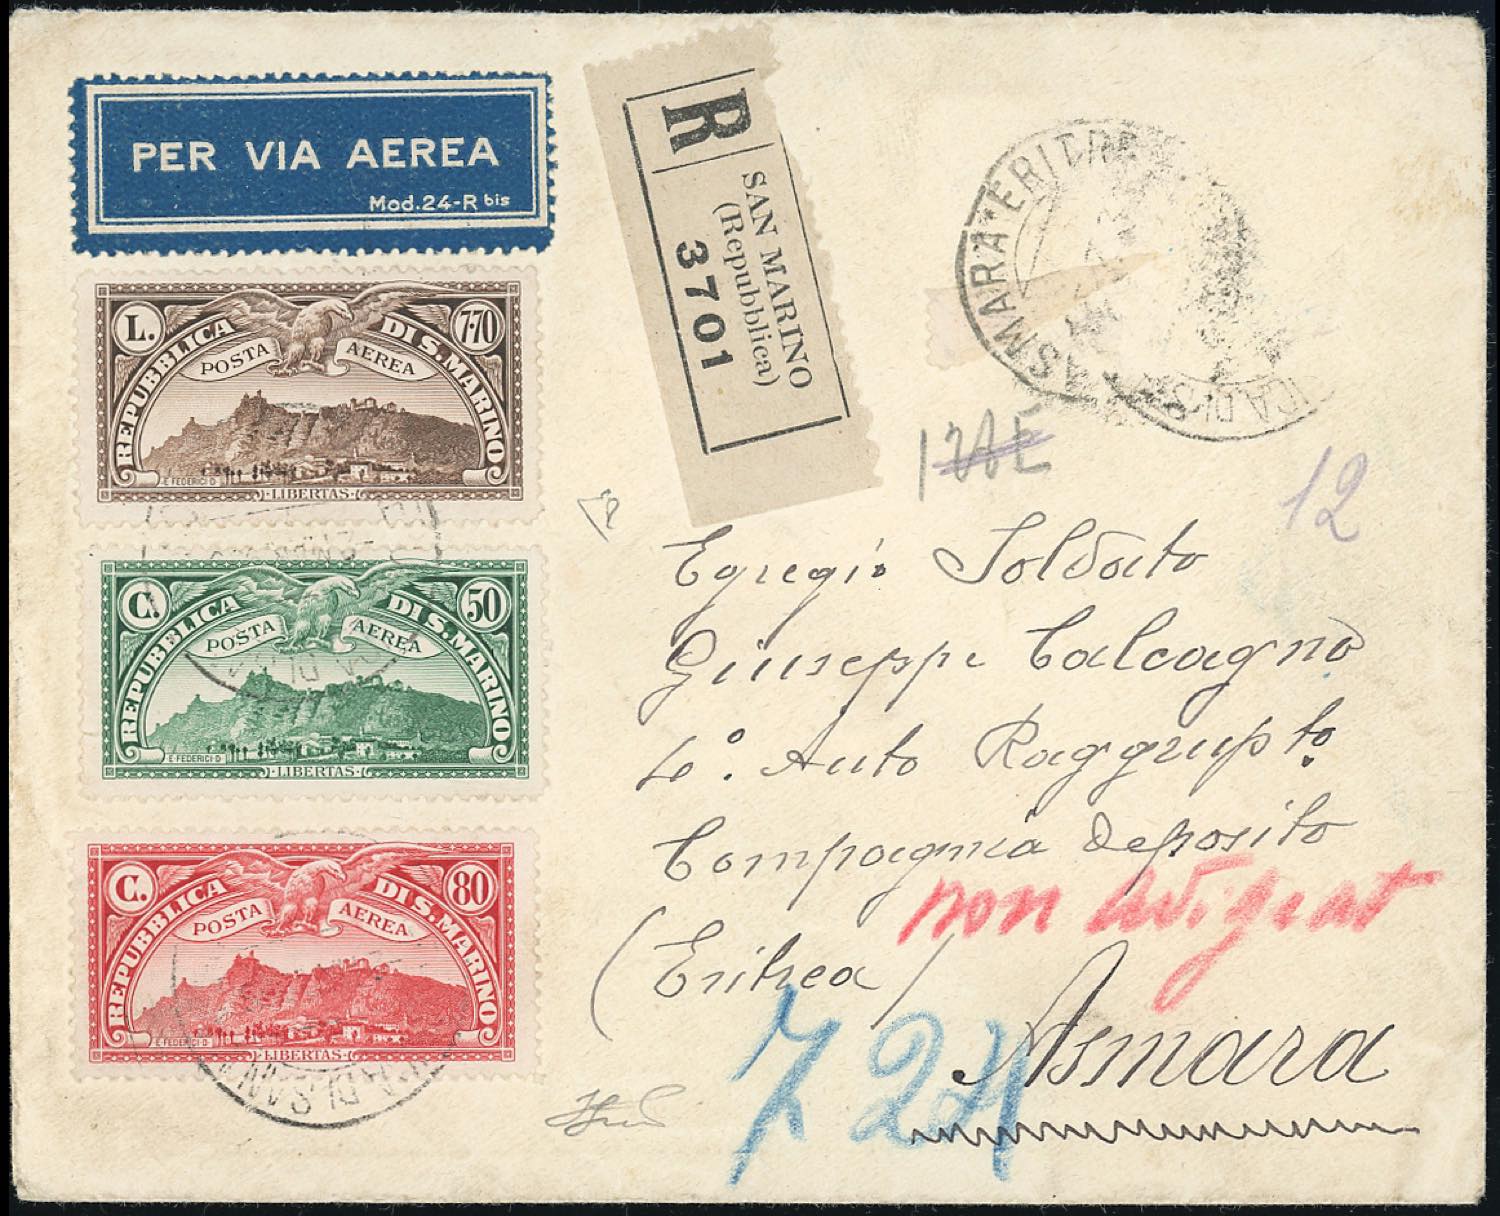 PER VIA AEREA
Mod. 24-R bis
R
SAN MARINO
(Repubblica)
3701
ASMARA * ERITREA
L. 7.70
REPUBBLICA DI S. MARINO
POSTA AEREA
E. FEDERICI D.
· LIBERTAS ·
C. 50
REPUBBLICA DI S. MARINO
POSTA AEREA
E. FEDERICI D.
· LIBERTAS ·
C. 80
REPUBBLICA DI S. MARINO
POSTA AEREA
E. FEDERICI D.
· LIBERTAS ·
12
Egregio Soldato
Giuseppe Calcagno
4º. Auto Raggrupto.
Compagnia Deposito
non
(Eritrea)
Asmara
724